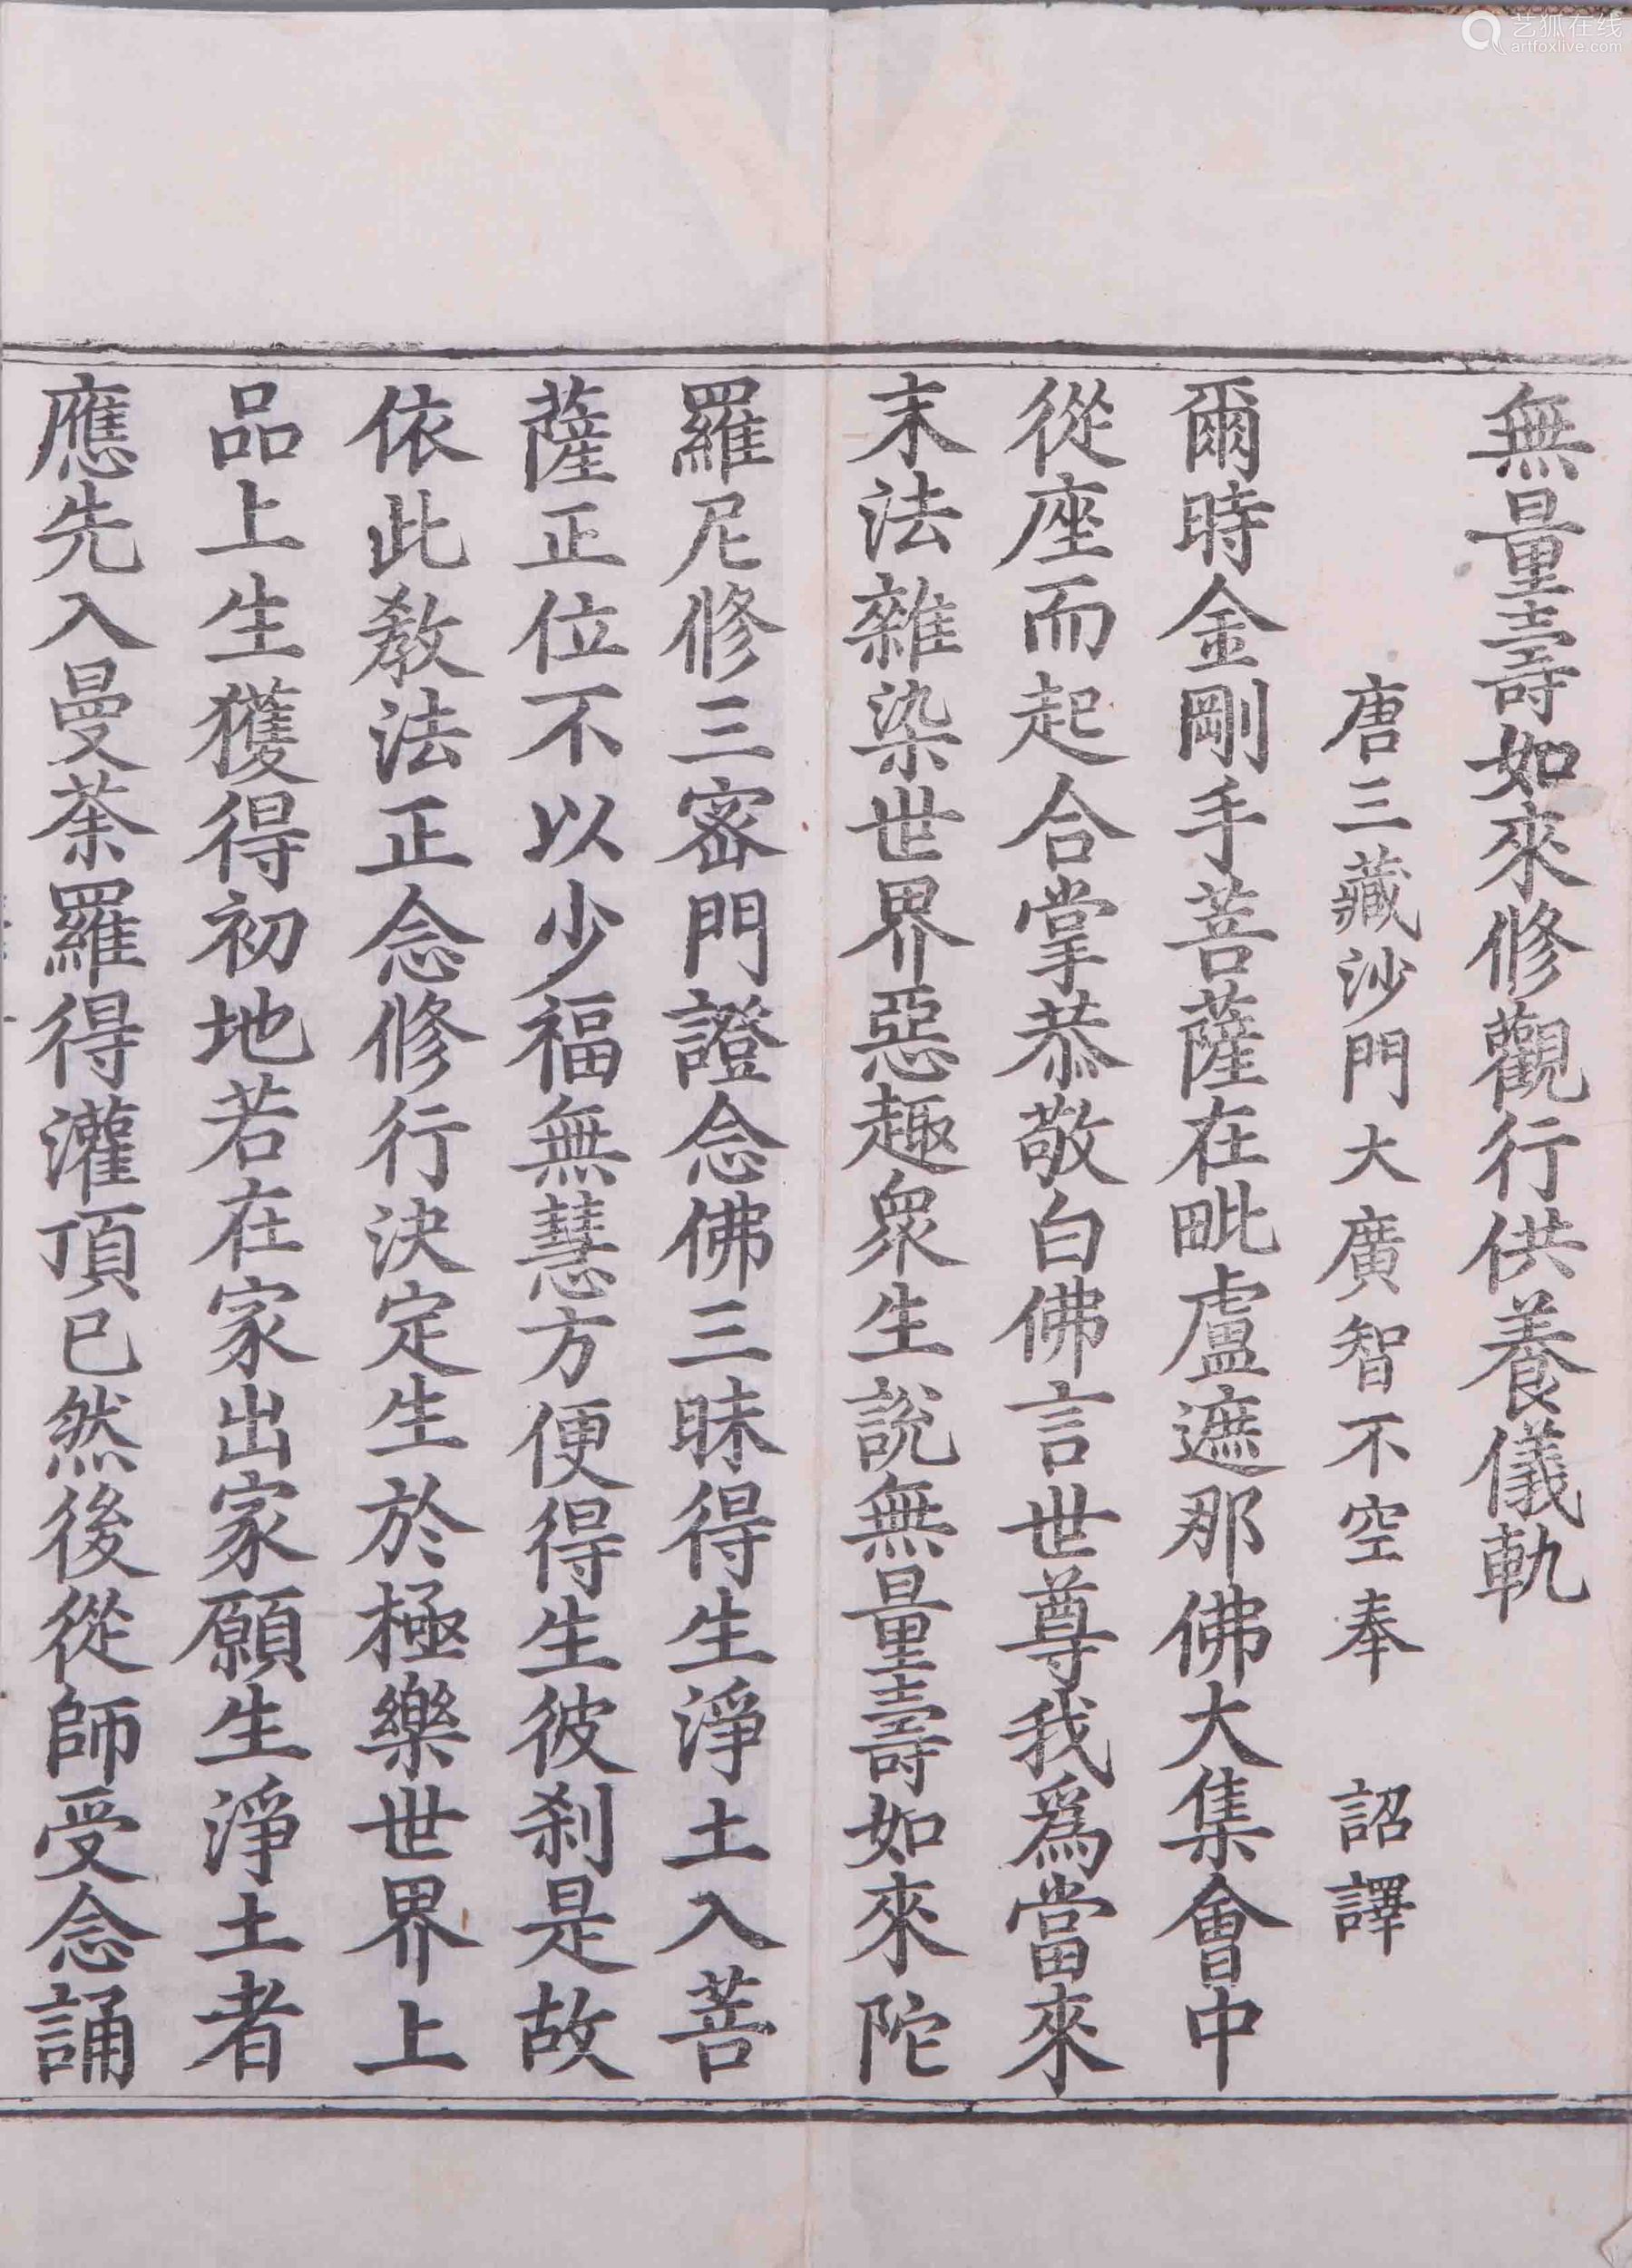 無量壽如來修觀行供養儀軌
唐三藏沙門大廣智不空奉 詔譯
爾時金剛手菩薩在毗盧遮那佛大集會中
從座而起合掌恭敬白佛言世尊我爲當來
末法雜染世界惡趣衆生說無量壽如來陀
羅尼修三密門證念佛三昧得生淨土入菩
薩正位不以少福無慧方便得生彼剎是故
依此教法正念修行決定生於極樂世界上
品上生獲得初地若在家出家願生淨土者
應先入曼荼羅得灌頂已然後從師受念誦
艺狐在线
artfoxlive.com